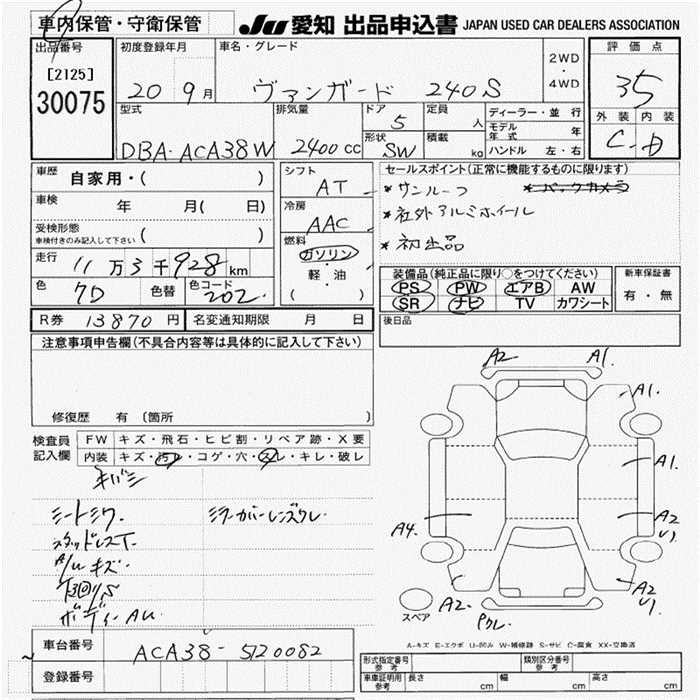 車内保管・守衛保管
JU 愛知 出品申込書 JAPAN USED CAR DEALERS ASSOCIATION
出品番号 初度登録年月 車名・グレード 評価点
[2125] 2WD・4WD
30075 20 9月 ヴァンガード 240S 35
型式 排気量 ドア 定員 人 ディーラー・並行 外装 内装
5 モデル年式 年
形状 積載 kg ハンドル 左・右
DBA-ACA38W 2400cc SW C D
車歴 自家用・( ) シフト AT セールスポイント(正常に機能するものに限ります)
*サンルーフ *バックカメラ
車検 年 月( 日) 冷房 AAC *社外アルミホイール
受検形態 車検付きのみ記入して下さい ( ) *初出品
走行 11万3千928km 燃料 ガソリン 軽・油 ( )
装備品(純正品に限り○をつけてください) 新車保証書
色 7D 色替 色コード 202 PS PW エアB AW 有・無
SR ナビ TV カワシート
R券 13870円 名変通知期限 月 日 後日品
注意事項申告欄(不具合内容等は具体的に記入して下さい)
修復歴 有 〔箇所
検査員記入欄 FW キズ・飛石・ヒビ割・リペア跡・X要
内装 キズ・汚レ・コゲ・穴・スレ・キレ・破レ
A2 A1.
A1.
A1.
A4. A2 U1.
A2 U1.
A2.
シートシワ. ミラーカバーレンズクレ.
スタッドレスT.
A/Wキズ.
ボディーAU.
スペア
A-キズ E-エクボ U-凹み W-補修跡 S-サビ C-腐食 XX-交換済
車台番号 ACA38-5120082
登録番号
形式指定番号 参考 類別区分番号 参考
車庫証明用 参考 長さ cm 幅 cm 高さ cm